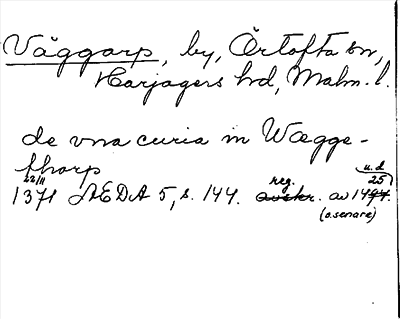 Väggarp, by, Örtofta sn,
Harjagers hd, Malm. l.
de vna curia in Wægge-
thorp
22/11
1371 ÆDA 5, s. 144. reg. av 1425 u.d.
(o. senare)